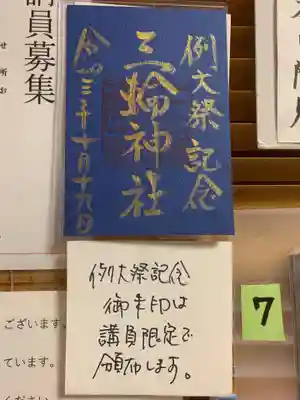 講員募集
せ
所
お
例大祭記念
三輪神社
令和三年十月十九日
例大祭記念
御朱印は
講員限定で
頒布します。
7
ございます。
ています。
ください